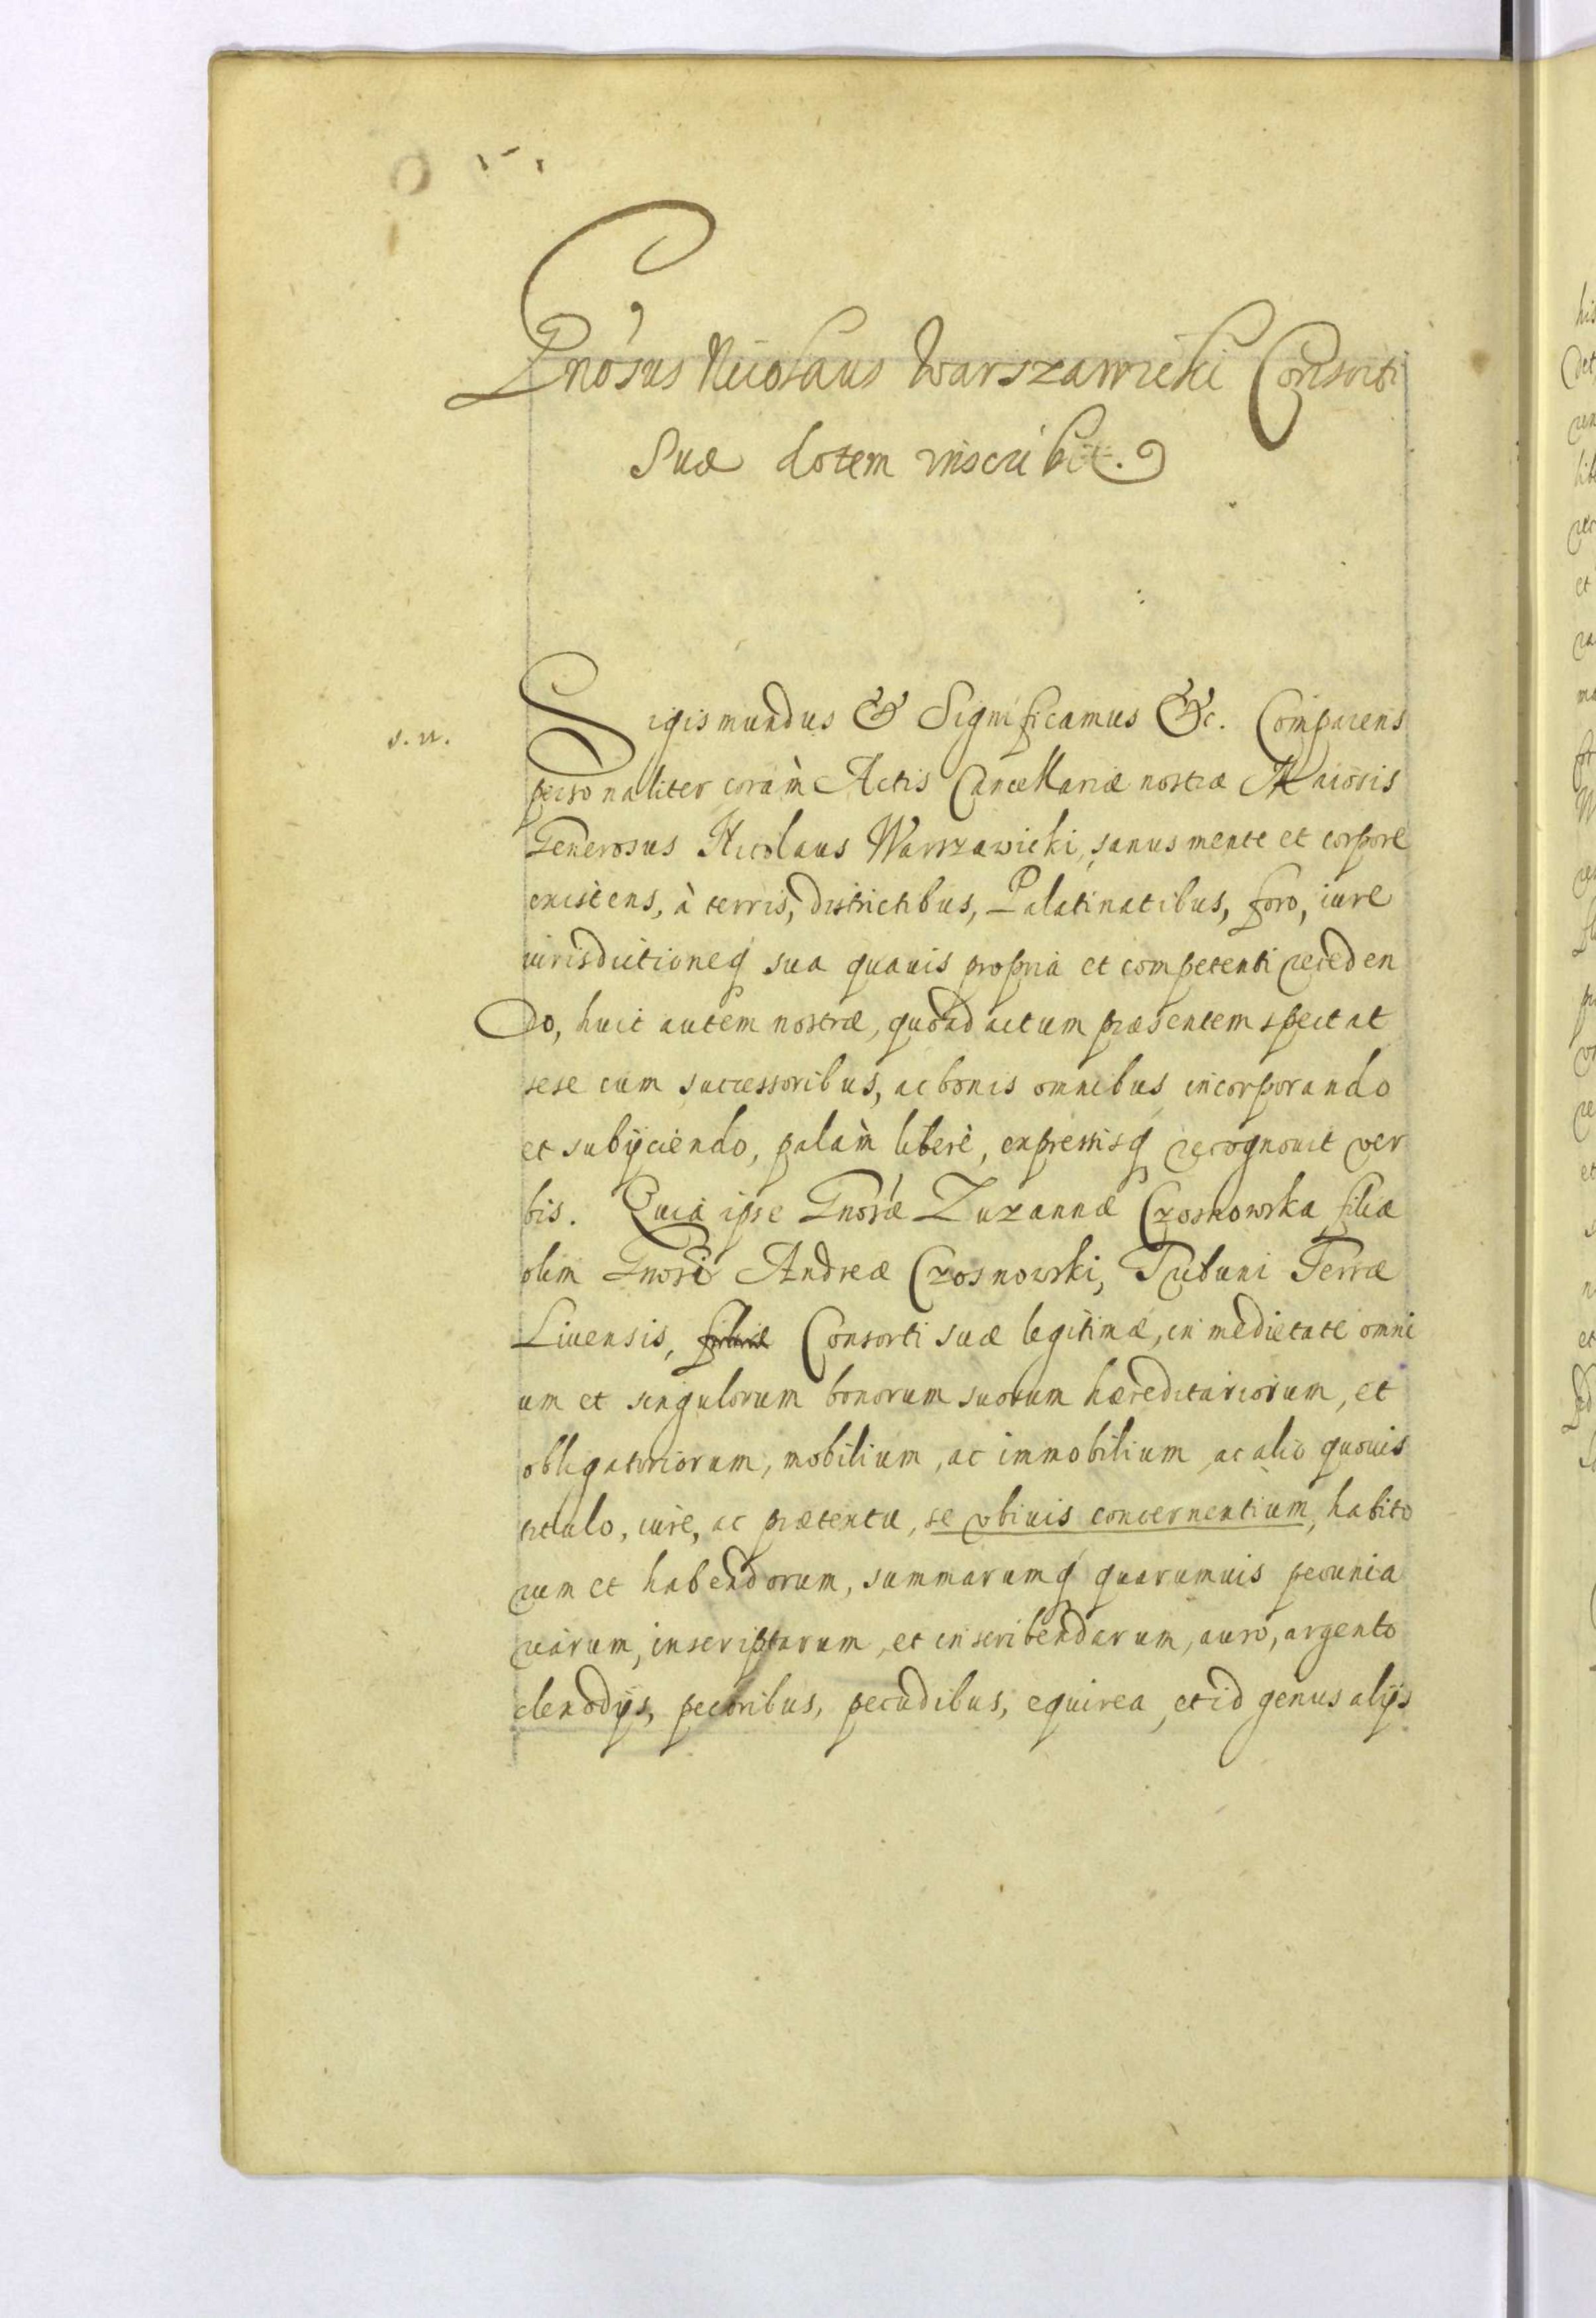 Gnosus Nicolaus Warszawicki Consorti
Suæ dotem inscribit.
s. n.
Sigismundus & Significamus &c. Comparens
personaliter coràm Actis Cancellariæ nostræ Maioris
Generosus Nicolaus Warszawicki, sanus mente et corpore
existens, à terris, districtibus, Palatinatibus, foro, iure
iurisdictioneq sua quauis propria et competenti receden
do, huic autem nostræ, quoad actum præsentem spectat
sese cum successoribus, ac bonis omnibus incorporando
et subijciendo, palàm liberè, expressisq recognouit ver
bis. Quia ipse Gnosæ Zuzannæ Czosnowska filiæ
olim Gnosi Andreæ Czosnowski, Tribuni Terræ
Liuensis, Consorti suæ legitimæ, in medietate omni
um et singulorum bonorum suorum hæreditariorum, et
obligatoriorum, mobilium, ac immobilium ac alio quouis
titulo, iure, ac prætextu, se vbiuis concernentium, habito
rum et habendorum, summarumq quarumuis pecunia
riarum, inscriptarum, et inscribendarum, auro, argento
clenodijs, pecoribus, pecudibus, equirea, et id genus alijs